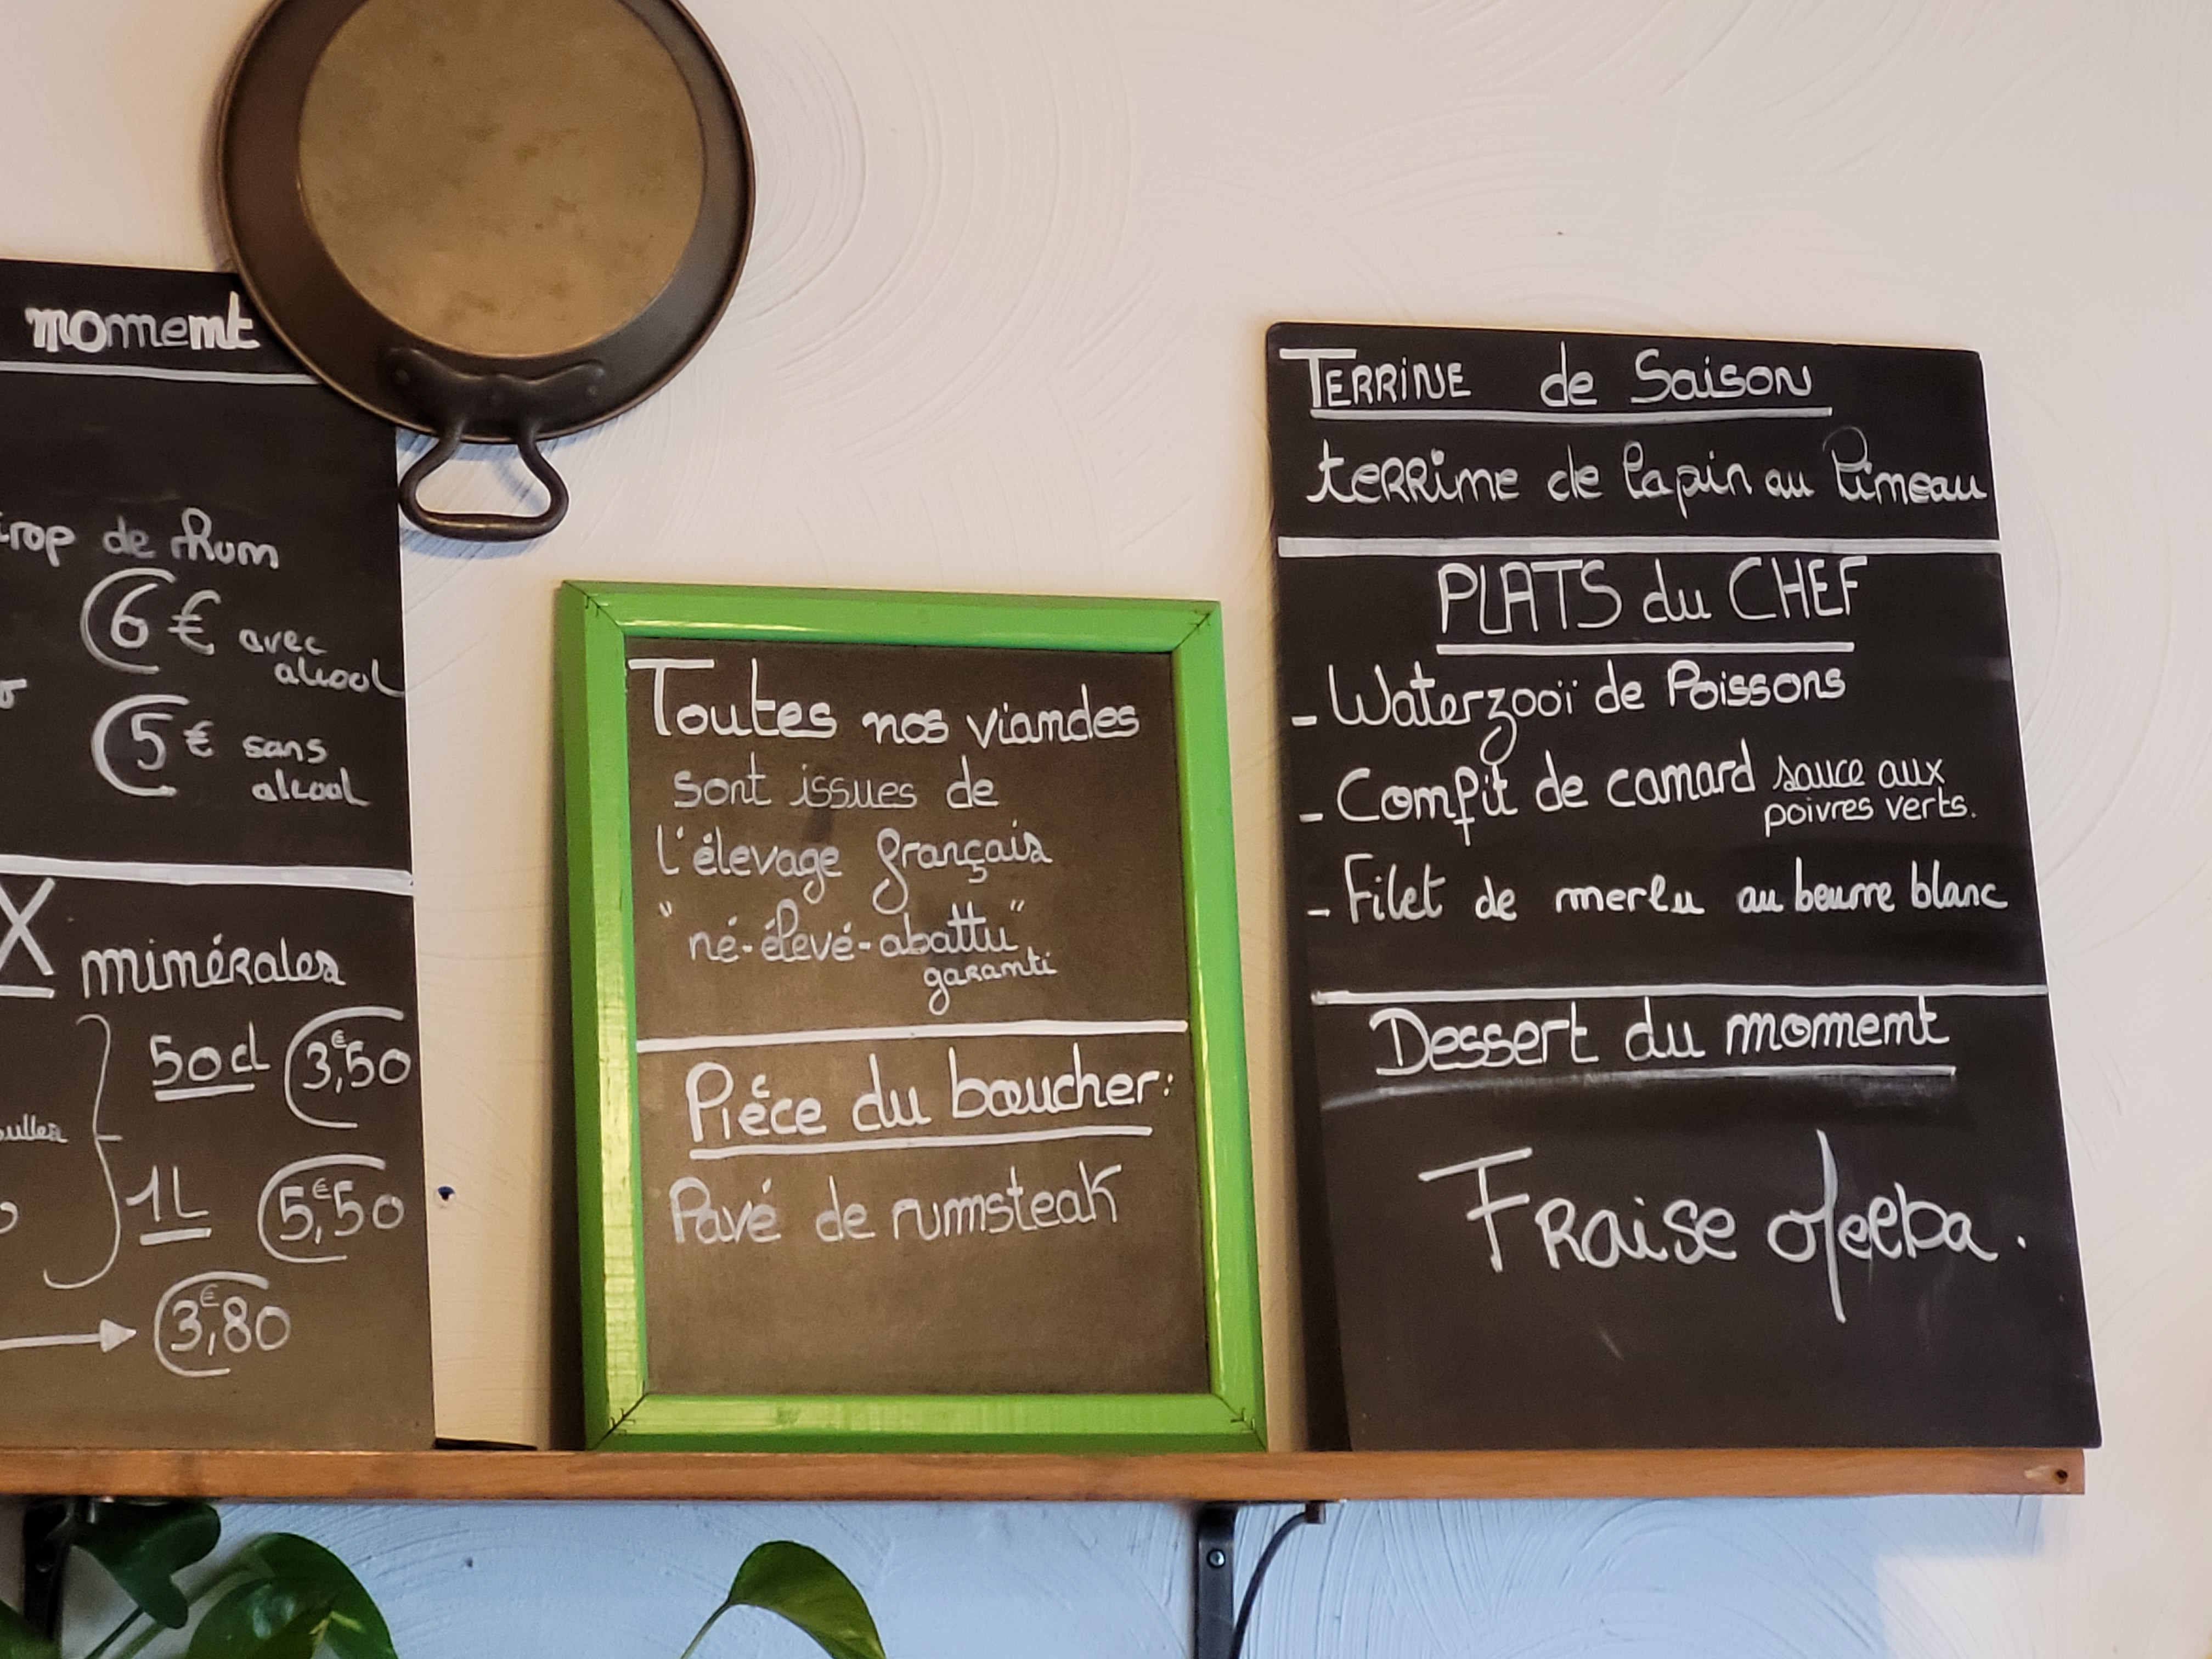 moment
irop de rhum
6 € avec
alcool
5 € sans
alcool
X minérales
50cl 3,€50
1L 5,€50
3,€80
Toutes nos viandes
sont issues de
l'élevage français
"né-élevé-abattu"
garanti
Pièce du boucher:
Pavé de rumsteak
TERRINE de Saison
terrine de lapin au Pineau
PLATS du CHEF
- Waterzooï de Poissons
- Confit de canard sauce aux
poivres verts.
- Filet de merlu au beurre blanc
Dessert du moment
Fraise Melba.